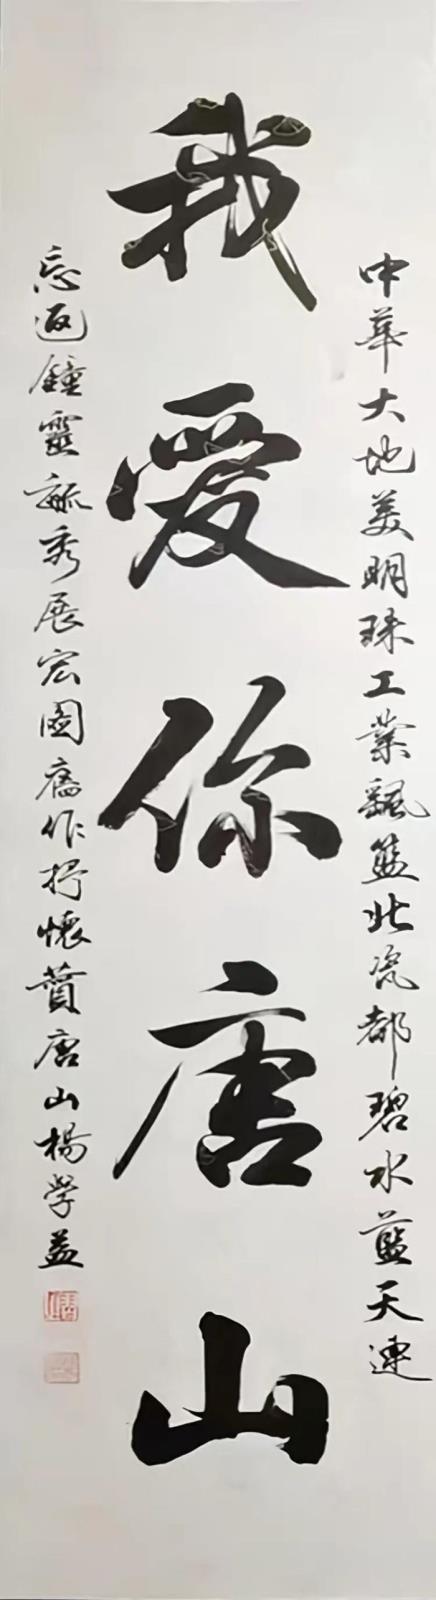 我愛你唐山
中華大地美明珠工業籃北瓷都碧水藍天連
忘返鐘靈毓秀展宏圖作抒懷贊唐山楊學益